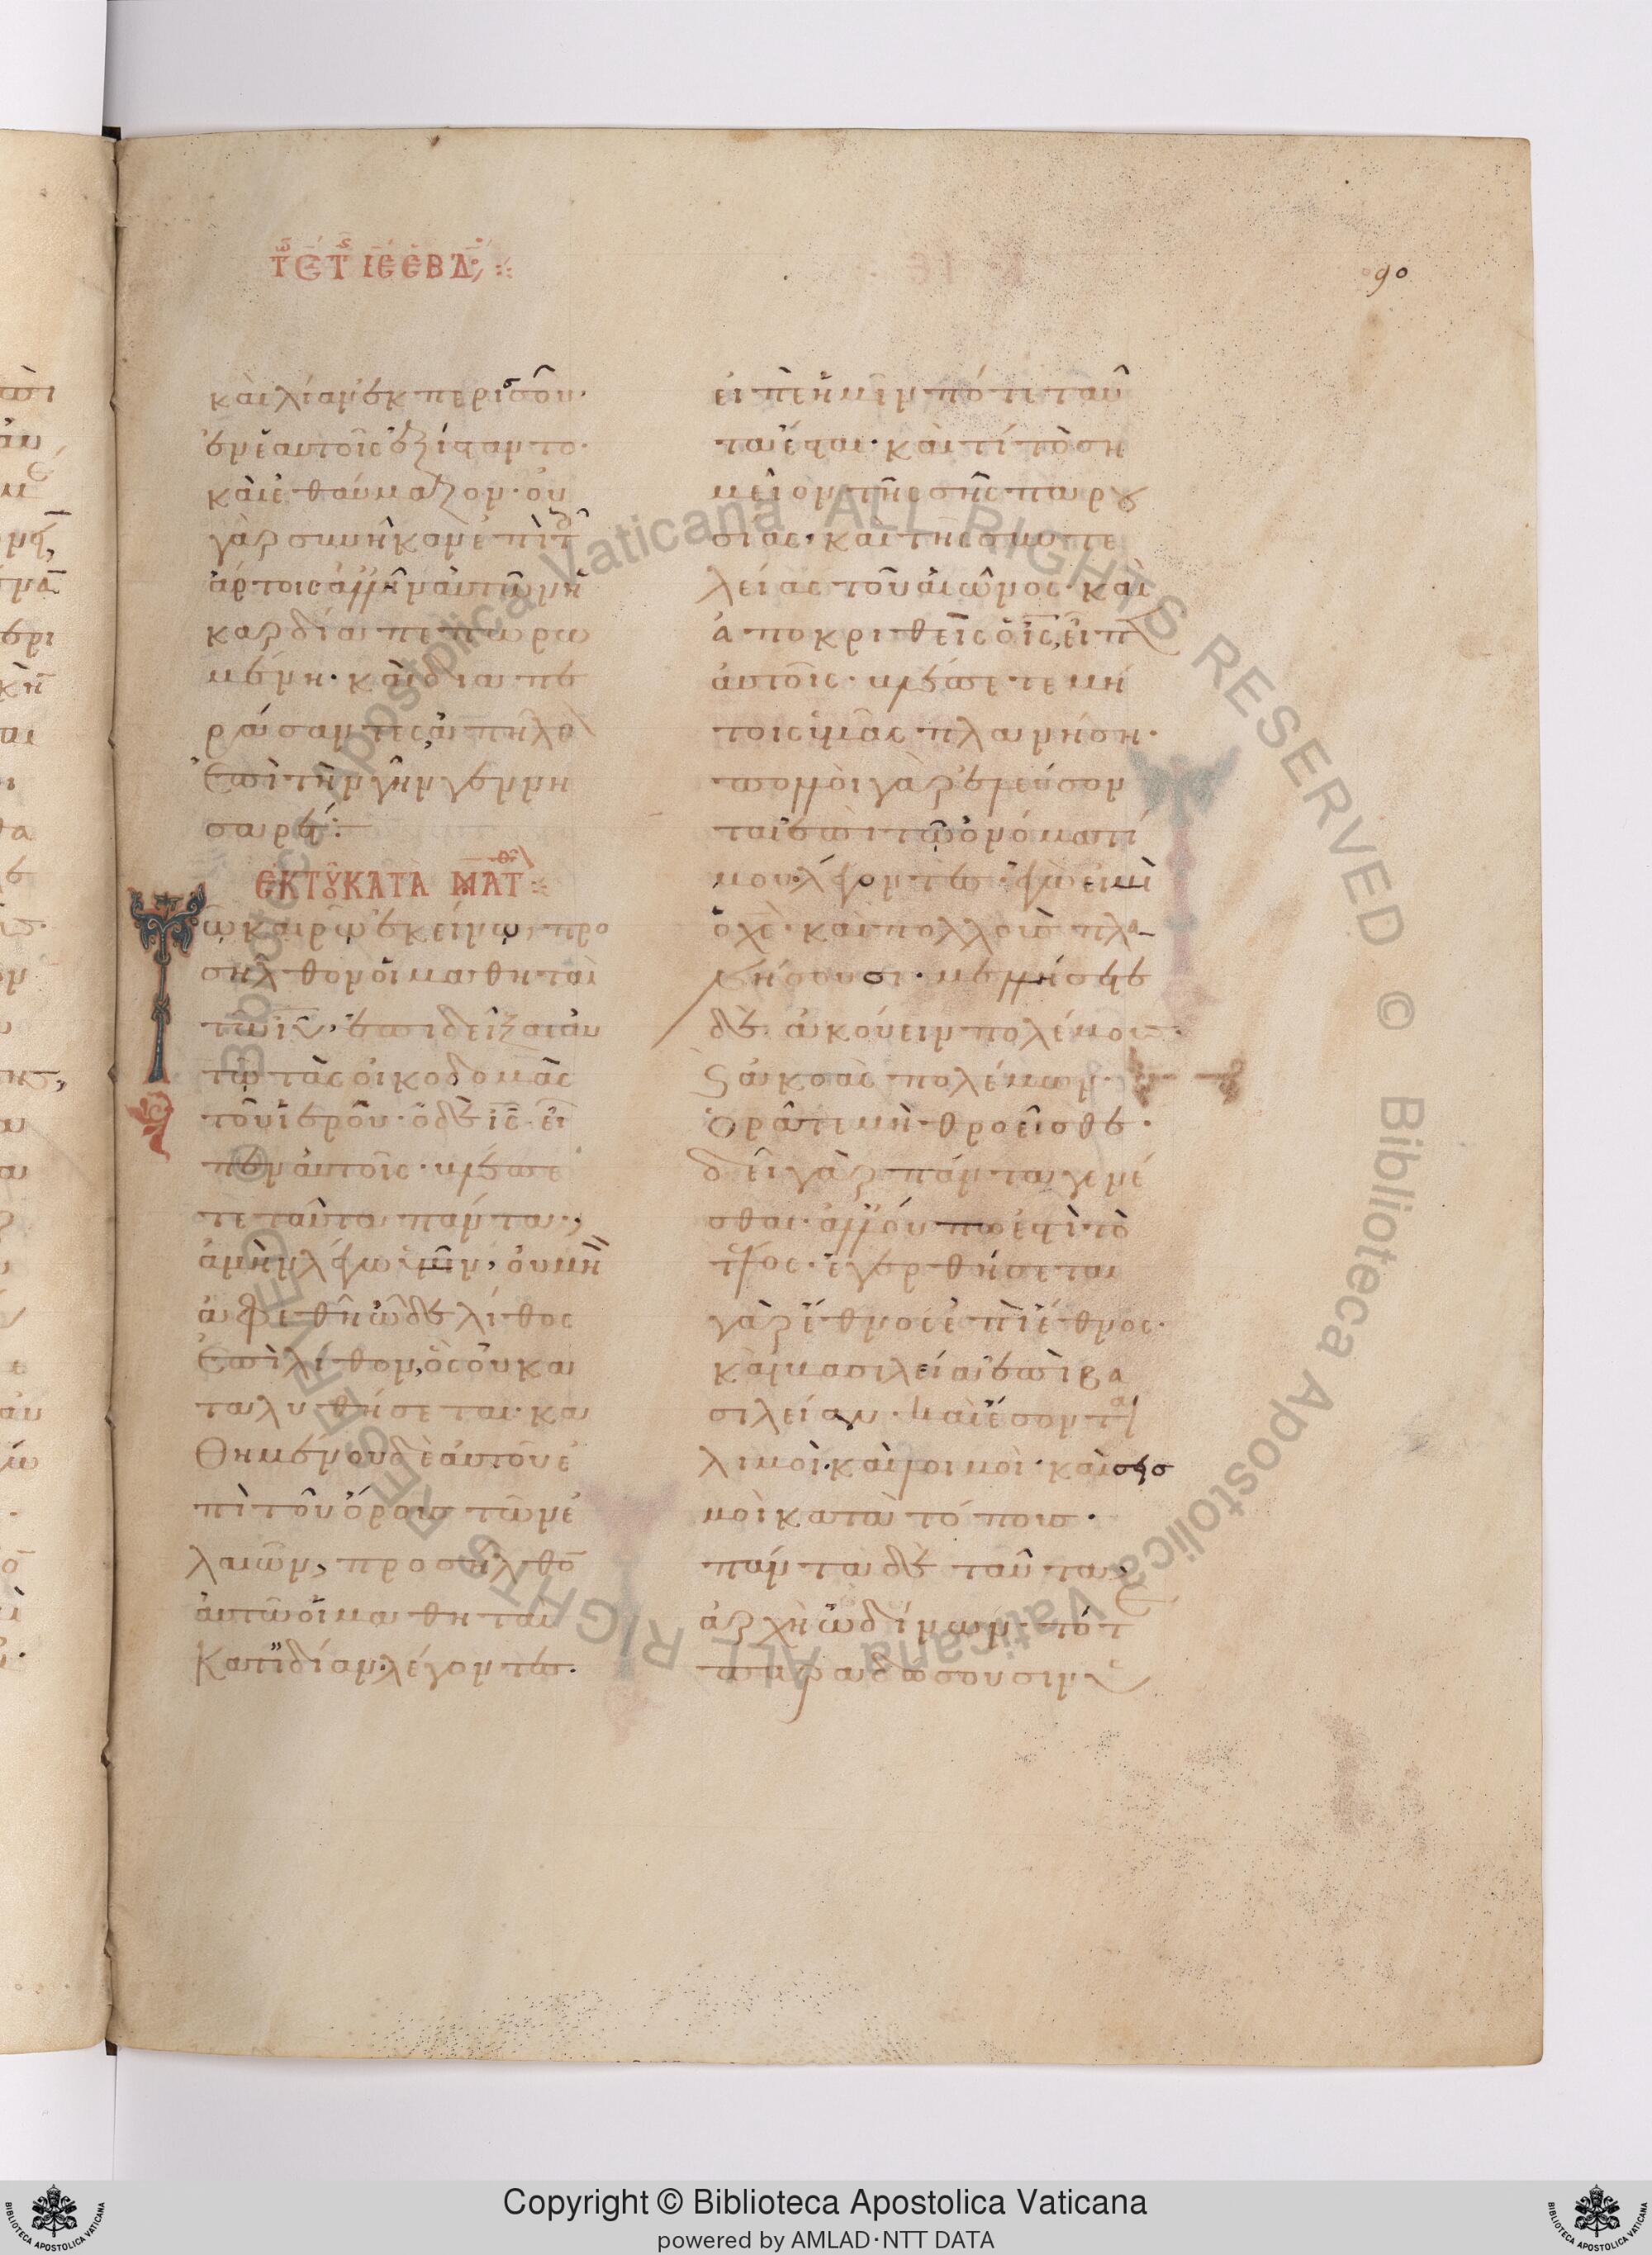 90
καὶ λίαν ἐκ περισσοῦ
ἐν ἑαυτοῖς ἐξίσταντο·
καὶ ἐθαύμαζον· οὐ
γὰρ συνῆκαν ἐπὶ τ
ἄρτοις ἀλλ ἦν αὐτῶν ἡ
καρδία πεπωρω
μένη· καὶ διαπε
ράσαντες, ἀπῆλθ
ἐπὶ τὴν γῆν γεννη
σαρέτ:
ἘΚ ΤΟΥ ΚΑΤᾺ ΜΑΤΘ
Τῶ καιρῶ ἐκείνω, προ
σῆλθον οἱ μαθηταὶ
τῶ ιυ, ἐπιδεῖξαι αὐ
τῶ τὰς οἰκοδομὰς
τοῦ ἱεροῦ· ὁ δὲ ις εἶ
πεν αὐτοῖς· βλέπε
τε ταῦτα πάντα,
ἀμὴν λέγω ὑμῖν, οὐ μὴ
ἀφεθῆ ὧδε λίθος
ἐπὶ λίθον, ὃς οὐ κα
ταλυθήσεται· κα
θημένου δὲ αὐτοῦ ἐ
πὶ τοῦ ὄρους τῶν ἐ
λαιῶν, προσῆλθο
αὐτῶ οἱ μαθηταὶ
κατιδίαν· λέγοντες·
εἰπὲ ἡμῖν πότε ταῦ
τα ἔσται· καὶ τί τὸ ση
μεῖον τῆς σῆς παρου
σίας· καὶ τῆς συντε
λείας τοῦ αἰῶνος· καὶ
ἀποκριθεὶς ὁ ις, εἶπ
αὐτοῖς· βλέπετε μή
τις ὑμᾶς πλανήση·
πολλοὶ γὰρ ἐλεύσον
ται ἐπὶ τῶ ὀνόματί
μου λέγοντες· ἐγώ εἰμι
ὁ χς· καὶ πολλοὺς πλα
νήσουσι· μελλήσετε
δὲ ἀκούειν πολέμους·
καὶ ἀκοὰς πολέμων·
ὁρᾶτε μὴ θροεῖσθε·
δεῖ γὰρ πάντα γενέ
σθαι· ἀλλ οὔπω ἐστὶ τὸ
τέλος· ἐγερθήσεται
γὰρ ἔθνος ἐπὶ ἔθνος·
καὶ βασιλεία ἐπὶ βα
σιλείαν· καὶ ἔσονται
λιμοὶ· καὶ λοιμοὶ· καὶ σεισ
μοὶ κατὰ τόπους·
πάντα δὲ ταῦτα
ἀρχὴ ὠδίνων· τότε
παραδώσουσιν
Copyright © Biblioteca Apostolica Vaticana
powered by AMLAD·NTT DATA